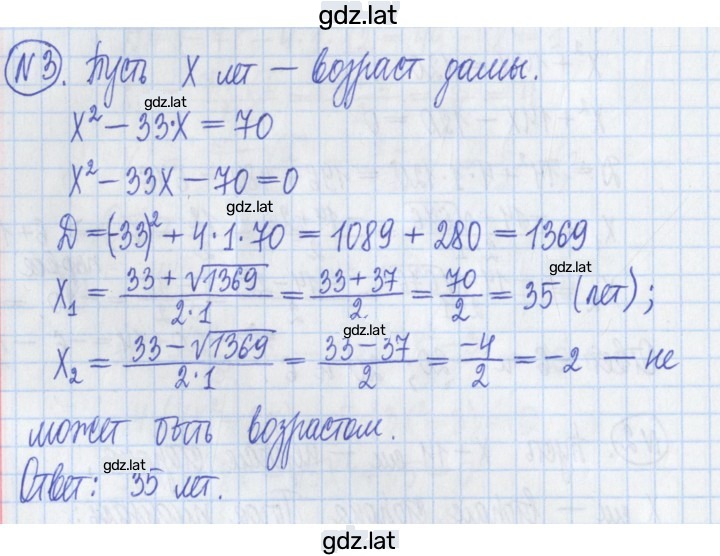 gdz.lat
№3. Пусть x лет — возраст дамы.
gdz.lat
x² − 33·x = 70
x² − 33x − 70 = 0
gdz.lat
Д = (-33)² + 4·1·70 = 1089 + 280 = 1369
gdz.lat
x₁ = (33 + √1369)/(2·1) = (33 + 37)/2 = 70/2 = 35 (лет);
gdz.lat
x₂ = (33 − √1369)/(2·1) = (33 − 37)/2 = −4/2 = −2 — не
может быть возрастом.
gdz.lat
Ответ: 35 лет.
gdz.lat